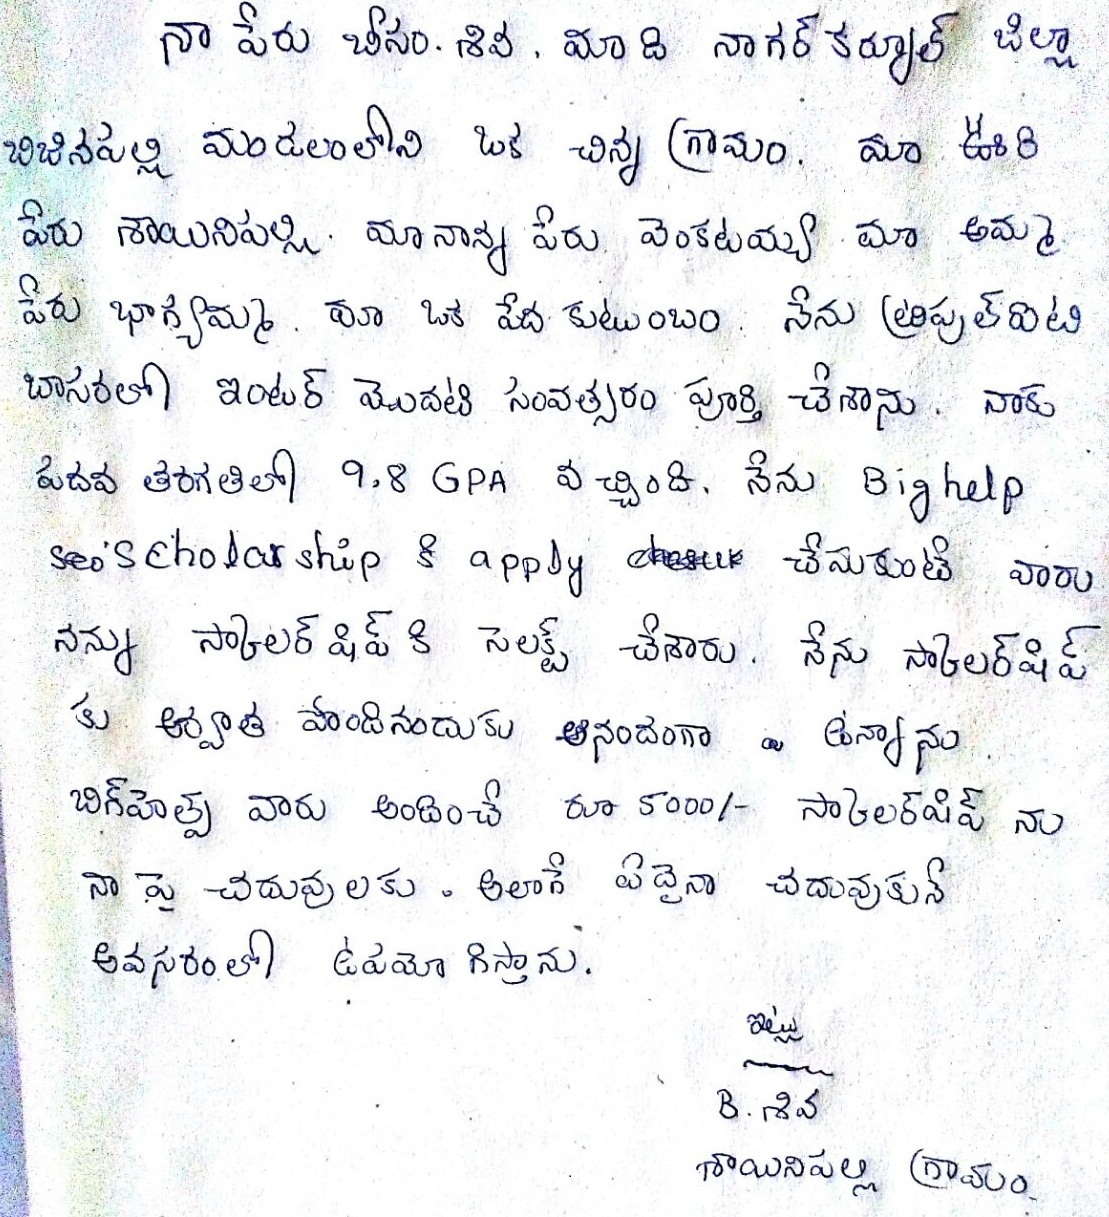 నా పేరు బీసం. శివ. మాది నాగర్ కర్నూల్ జిల్లా
బిజినపల్లి మండలంలోని ఒక చిన్న గ్రామం. మా ఊరి
పేరు శాయినిపల్లి. మా నాన్న పేరు వెంకటయ్య మా అమ్మ
పేరు భాగ్యమ్మ. మా ఒక పేద కుటుంబం. నేను త్రిపుల్ ఐటి
బాసరలో ఇంటర్ మొదటి సంవత్సరం పూర్తి చేశాను. నాకు
పదవ తరగతిలో 9.8 GPA వచ్చింది. నేను Big help
Scholar ship కి apply చేసుకుంటే వారు
నన్ను స్కాలర్ షిప్ కి సెలక్ట్ చేశారు. నేను స్కాలర్ షిప్
కు అర్హత పొందినందుకు ఆనందంగా ఉన్నాను.
బిగ్ హెల్ప్ వారు అందించే రూ 5000/- స్కాలర్ షిప్ ను
నా పై చదువులకు. అలాగే ఏదైనా చదువుకునే
అవసరంలో ఉపయోగిస్తాను.
ఇట్లు
B. శివ
శాయినిపల్లి గ్రామం.